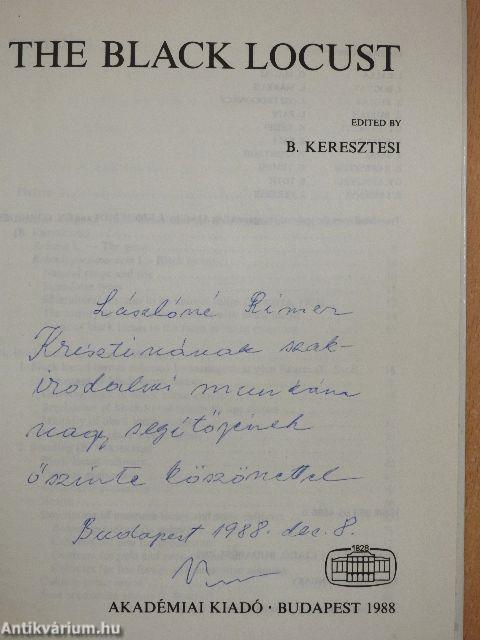 THE BLACK LOCUST
EDITED BY
B. KERESZTESI
Lászlóné Rimer
Krisztinának szak-
irodalmi munkám
nagy segítőjének
őszinte köszönettel
Budapest 1988. dec. 8.
1828
AKADÉMIAI KIADÓ · BUDAPEST 1988
Antikvárium.hu